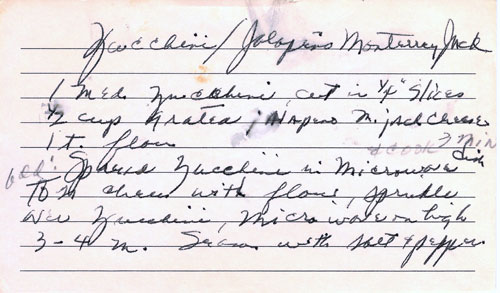 Zucchini / Jalapeño Monterrey Jack
1 Med. Zucchini, cut in 1/4" slices
1/2 cup grated Jalapeno M. jack cheese
1 t. flour
& cook 2 min
Spread Zucchini in Microwave dish
cheese with flour, sprinkle
over Zucchini, Microwave on high
3-4 m. Season with salt & pepper